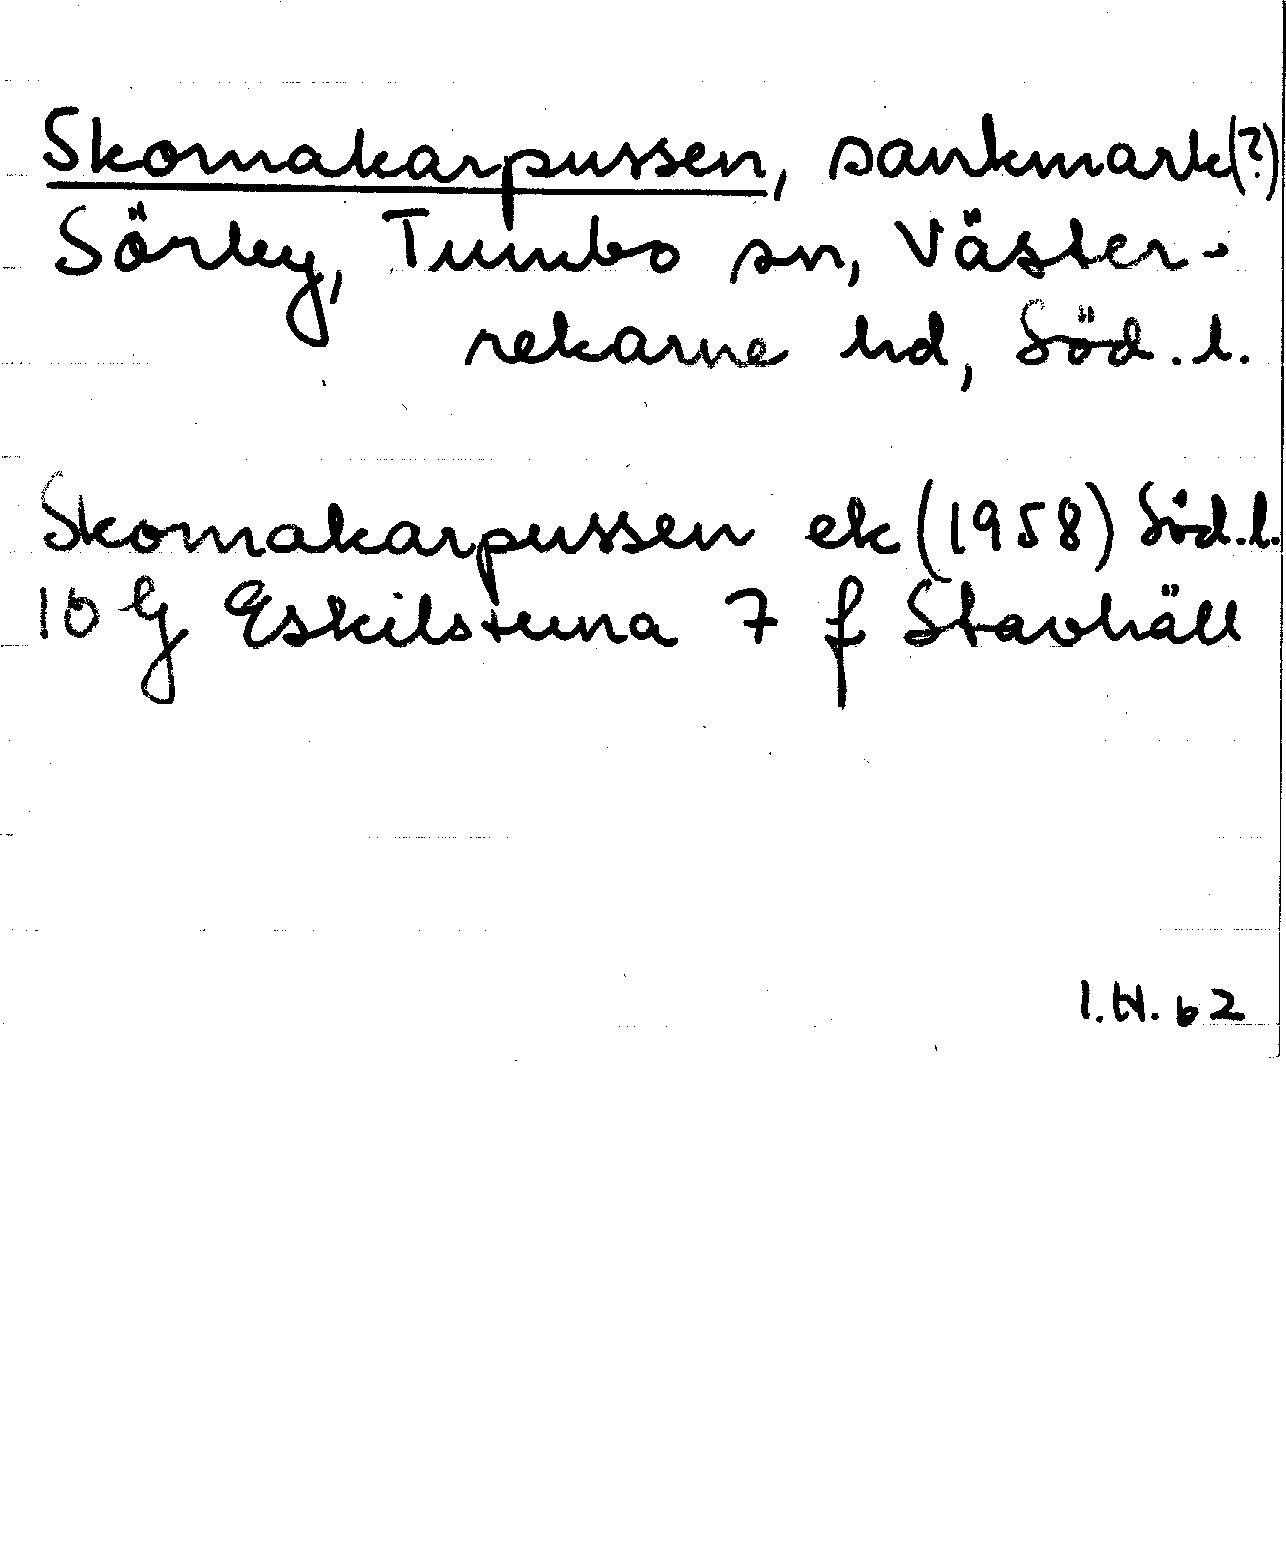 Skomakarpussen, sankmark(?)
Sörby, Tumbo sn, Väster-
rekarne hd, Söd. l.
Skomakarpussen ek (1958) Söd. l.
10 G Eskilstuna 7 f Stavhäll
I.H. 62